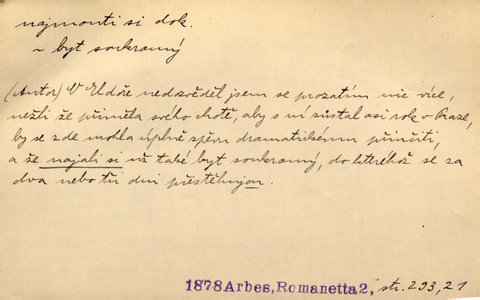 najmouti si dok.
~ byt soukromý
(Autor) V Eldoře nedozvěděl jsem se prozatím nic více,
nežli že přiměla svého chotě, aby s ní zůstal asi rok v Praze,
by se zde mohla úplně zpěvu dramatickému přiučiti,
a že najali si už také byt soukromý, do kteréhož se za
dva nebo tři dni přestěhujou.
1878 Arbes, Romanetta 2, str. 293, 21